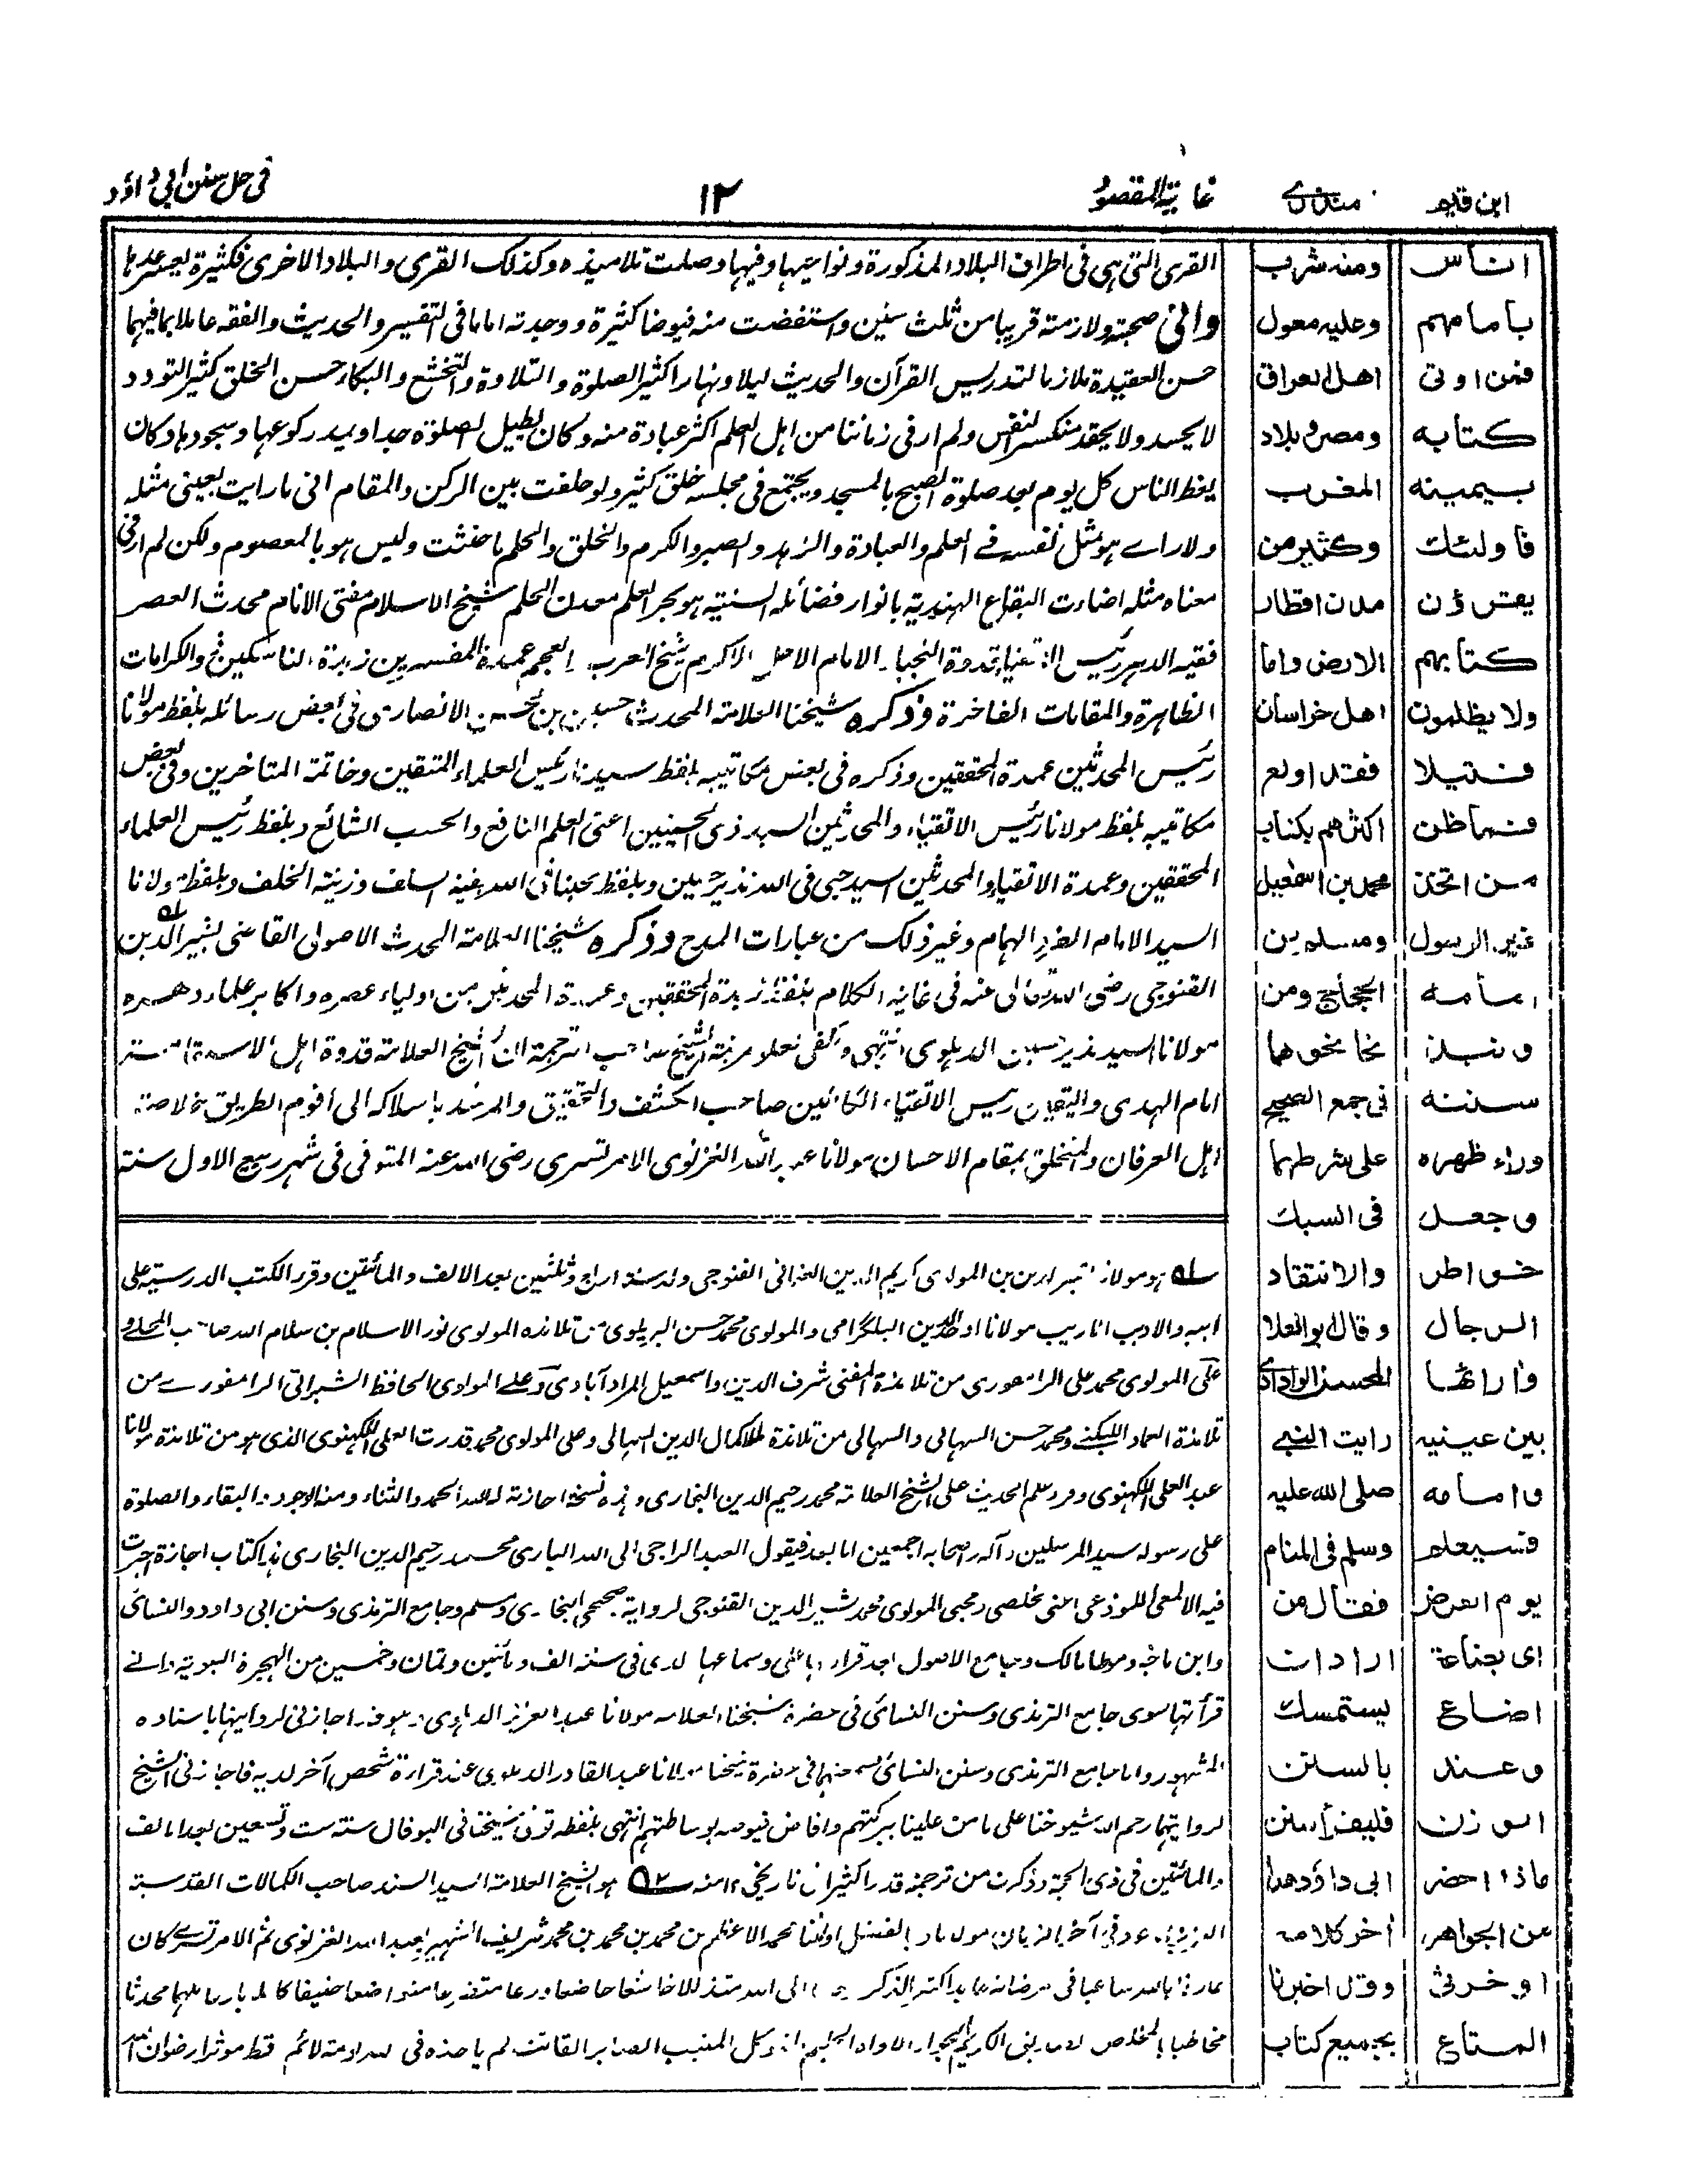 ابن قيم
منذري
غاية المقصود
١٢
فى حل سنن ابي داؤد
الناس
بامامهم
فمن اوتى
كتابه
بيمينه
فاولئك
يقرؤن
كتابهم
ولا يظلمون
فتيلا
فما ظن
من اتخذ
غير الرسول
امامه
ونبذ
سنته
وراء ظهره
وجعل
خواطر
الرجال
وآرائها
بين عينيه
وامامه
فسيعلم
يوم العرض
اى بضاعة
اضاع
وعند
الوزن
ماذا احضر
من الجواهر
او خرثى
المتاع
ومنه شرب
وعليه معول
اهل العراق
ومصر وبلاد
المغرب
وكثير من
مدن اقطار
الارض واما
اهل خراسان
فقد اولع
اكثرهم بكتاب
محمد بن اسمعيل
ومسلم بن
الحجاج ومن
نحا نحوهما
فى جمع الصحيح
على شرطهما
فى السبك
والانتقاد
وقال ابو العلا
المحسن الواداري
رايت النبي
صلى الله عليه
وسلم فى المنام
فقال من
اراد ان
يستمسك
بالسنن
فليقرأ سنن
ابى داؤد هذا
آخر كلامه
وقد اخبرنا
بجميع كتاب
القرى التى هى فى اطراف البلاد المذكورة ونواحيها وفيها وصلت تلاميذه وكذلك القرى والبلاد الاخرى فكثيرة يعسر عدها
وانى صحبته ولازمته قريبا من ثلث سنين واستفضت منه فيوضا كثيرة ووجدته اماما فى التفسير والحديث والفقه عاملا بما فيهما
حسن العقيدة ملازما لتدريس القرآن والحديث ليلا ونهارا كثير الصلوة والتلاوة والتخشع والبكاء حسن الخلق كثير التودد
لا يحسد ولا يحقد منكسر النفس ولم ار فى زماننا من اهل العلم اكثر عبادة منه وكان يطيل الصلوة جدا ويمد ركوعها وسجودها وكان
يعظ الناس كل يوم بعد صلوة الصبح بالمسجد ويجتمع فى مجلسه خلق كثير ولو حلفت بين الركن والمقام انى ما رايت بعينى مثله
ولا راى هو مثل نفسه فى العلم والعبادة والزهد والصبر والكرم والخلق والحلم ما حنثت وليس هو بالمعصوم ولكن لم ار فى
معناه مثله اضاءت البقاع الهندية بانوار فضائله السنية هو بحر العلم معدن الحلم شيخ الاسلام مفتى الانام محدث العصر
فقيه الدهر رئيس الاتقياء قدوة النجباء الامام الاجل الاكرم شيخ العرب والعجم عمدة المفسرين زبدة الناسكين ذو الكرامات
الظاهرة والمقامات الفاخرة وذكره شيخنا العلامة المحدث حسين بن محسن الانصارى فى بعض رسائله بلفظ مولانا
رئيس المحدثين عمدة المحققين وذكره فى بعض مكاتيبه بلفظ سيدنا رئيس العلماء المتقين وخاتمة المتاخرين وفى بعض
مكاتيبه بلفظ مولانا رئيس الاتقياء والمحدثين السيد ذى الحسنيين اعنى العلم النافع والحسب الشائع وبلفظ رئيس العلماء
المحققين وعمدة الاتقياء والمحدثين السيد حبى فى الله نذير حسين وبلفظ محبنا فى الله بقية السلف وزينة الخلف وبلفظ مولانا
السيد الامام الفرد الهمام وغير ذلك من عبارات المدح وذكره شيخنا العلامة المحدث الاصولى القاضى بشير الدين
القنوجى رضى الله تعالى عنه فى غاية الكلام بلفظ زبدة المحققين وعمدة المحدثين من اولياء عصره واكابر علماء دهره
مولانا السيد نذير حسين الدهلوى انتهى وكفى بعلو مرتبة الشيخ صاحب الترجمة ان الشيخ العلامة قدوة اهل
امام الهدى واليقين رئيس الاتقياء الكاملين صاحب الكشف والتحقيق والمرشد باسلاكه الى اقوم الطريق خلاصة
اهل العرفان والمتخلق بمقام الاحسان مولانا عبد الله الغزنوى الامرتسرى رضى الله عنه المتوفى فى شهر ربيع الاول سنة
له هو مولانا بشير الدين بن المولوى كريم الدين العثمانى القنوجى ولد سنة اربع وثلثين بعد الالف والمائتين وقرء الكتب الدرسية على
ابيه والاديب الاريب مولانا اوحد الدين البلگرامى والمولوى محمد حسن البريلوى من تلامذه المولوى نور الاسلام بن سلام الله صاحب المحلى و
على المولوى محمد على الرامفورى من تلامذة المفتى شرف الدين واسمعيل المرادآبادى وعلى المولوى الحافظ الشبراتى الرامفورى من
تلامذة العماد اللبكنى ومحمد حسن السهالى والسهالى من تلامذة الملا كمال الدين السهالى وعلى المولوى محمد قدرت العلى اللكهنوى الذى هو من تلامذة مولانا
عبد العلى اللكهنوى وقرء علم الحديث على الشيخ العلامة محمد رحيم الدين البخارى وهذه نسخة اجازته لله الحمد والثناء ومنه الوجود والبقاء والصلوة
على رسوله سيد المرسلين وآله واصحابه اجمعين اما بعد فيقول العبد الراجى الى الله البارى محمد رحيم الدين البخارى هذا كتاب اجازة اجزت
فيه الالمعى اللوذعى اعنى مخلصى ومحبى المولوى محمد بشير الدين القنوجى لرواية صحيحى البخارى ومسلم وجامع الترمذى وسنن ابى داود والنسائى
وابن ماجه وموطا مالك وجامع الاصول بعد قراءة باعلى وسماعها لدى فى سنة الف ومائتين وثمان وخمسين من الهجرة النبوية وانى
قرأتها سوى جامع الترمذى وسنن النسائى فى حضرة شيخنا العلامه مولانا عبد العزيز الدهلوى وهو قد اجازنى لروايتها باسناده
المشهور واما جامع الترمذى وسنن النسائى سمعتهما فى حضرة شيخنا مولانا عبد القادر الدهلوى عند قراءة شخص آخر لديه فاجازنى الشيخ
لروايتهما رحم الله شيوخنا على ما من علينا ببركتهم وافاض فيوضه بوساطتهم انتهى بلفظه توفى شيخنا فى البوفال سنة ست وتسعين بعد الالف
والمائتين فى ذى الحجة وذكرت من ترجمته قدرا كثيرا فى تاريخى ١٢ منه ٥٢ هو الشيخ العلامة السيد السند صاحب الكمالات القدسية
محمد الاعظم بن محمد بن محمد بن محمد شريف الشهير بعبد الله الغزنوى ثم الامرتسرى كان
عارفا بالله ساعيا فى مرضاته الى الله متذللا خاشعا خاضعا ورعا متضرعا متواضعا حنيفا كاملا بارعا ملهما محدثا
مخاطبا المخلص لم ياخذه فى الله لومة لائم قط موثرا رضوان الله